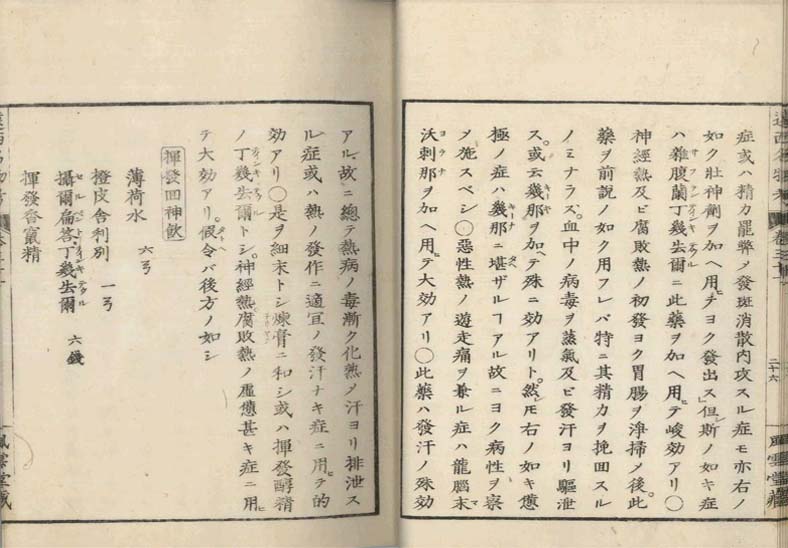 症或ハ精力罷弊メ發斑消散内攻スル症モ亦右ノ
如ク壮神劑ヲ加ヘ用ヒチヨク發出ス但シ斯ノ如キ症
ハ雑腹蘭丁幾去爾ニ此藥ヲ加ヘ用ヒテ峻効アリ○
サフラン チインキチウル
神經熱及ビ腐敗熱ノ初發ヨク胃腸ヲ浄掃メ後此
藥ヲ前説ノ如ク用フレバ特ニ其精力ヲ挽回スル
ノミナラズ血中ノ病毒ヲ蒸氣及ビ發汗ヨリ驅泄
ス。或云幾那ヲ加ヘテ殊ニ効アリト。然レ𪜈右ノ如キ憊
キーナ
極ノ症ハ幾那ニ堪ザルヿアル故ニヨク病性ヲ察
キーナ タヘ
メ施スベシ○惡性熱ノ遊走痛ヲ兼ル症ハ龍腦末
沃刺那ヲ加ヘ用ヒテ大効アリ○此藥ハ發汗ノ殊効
ヨラナ
二十六
アル故ニ總テ熱病ノ毒漸ク化熟メ汗ヨリ排泄ス
ル症或ハ熱ノ發作ニ適宜ノ發汗ナキ症ニ用ヒテ的
効アリ○是ヲ細末トシ煉膏ニ和シ或ハ揮發醇精
ノ丁幾去爾トシ。神經熱腐敗熱ノ虚憊甚キ症ニ用ヒ
チインキチウル
テ大効アリ。假令バ後方ノ如シ
揮發回神飲
薄荷水 六弓
橙皮舎利別 一弓
攝爾扁答丁幾去爾 六錢
セルペンタ チインキチウル
揮發香竄精